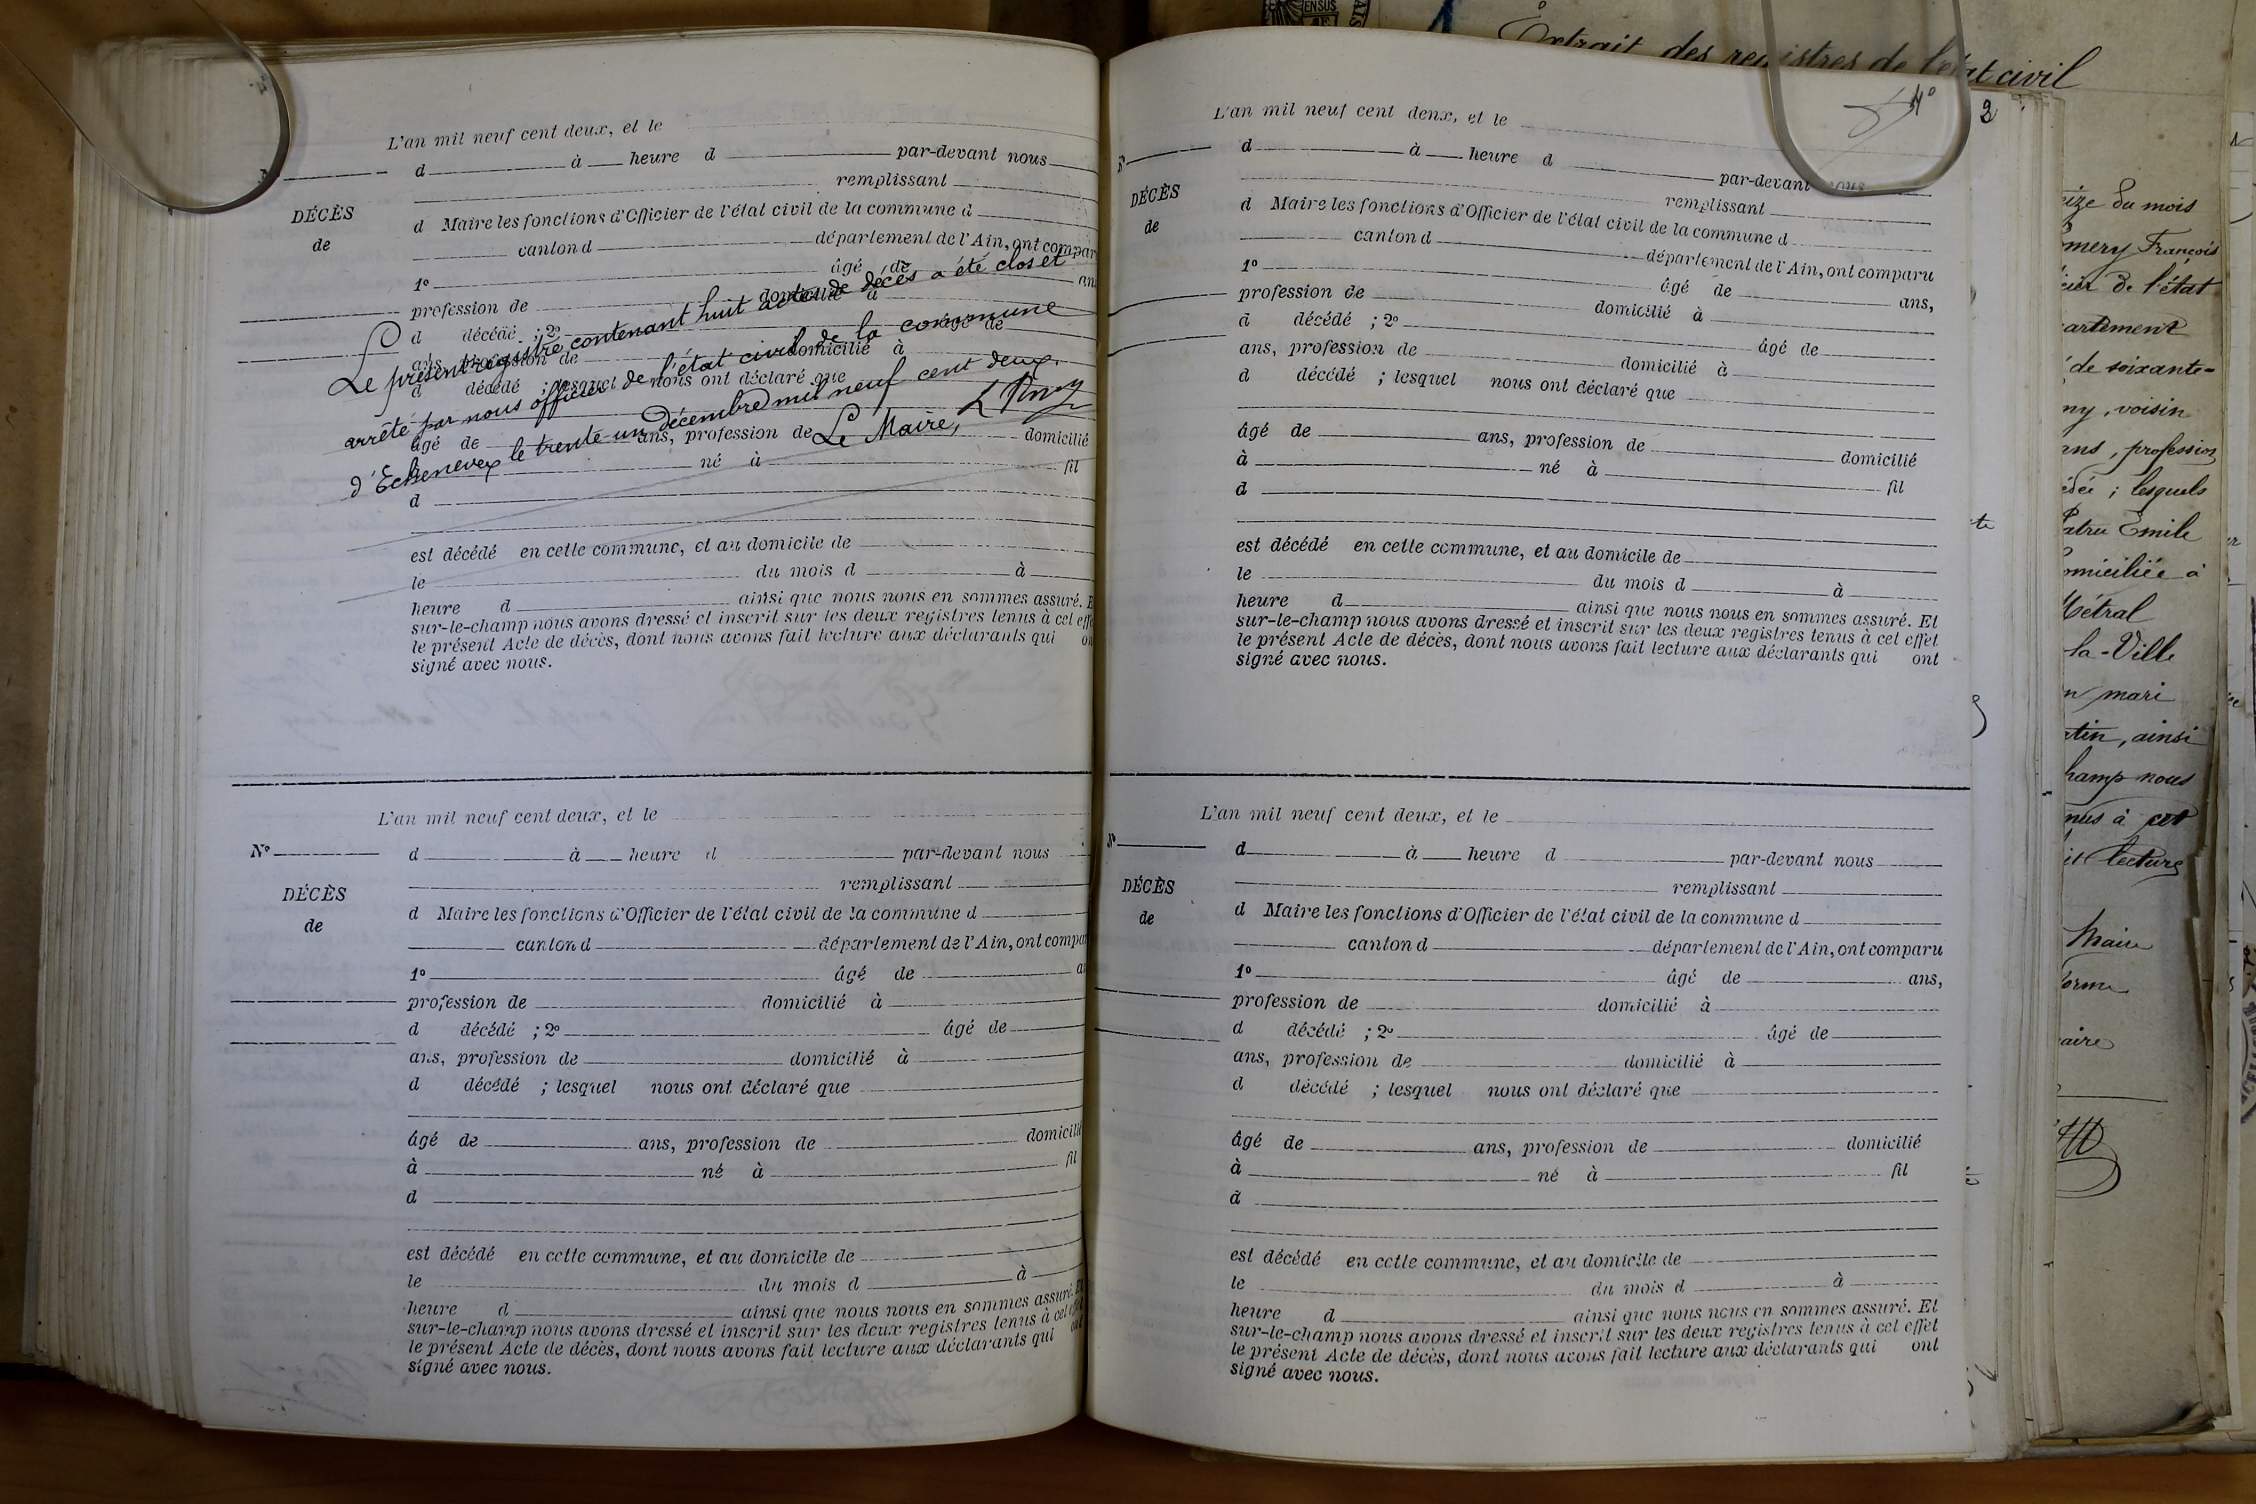 Extrait des registres de l'état civil
L'an mil neuf cent deux, et le
d à heure d par-devant nous
remplissant
DÉCÈS
de
d Maire les fonctions d'Officier de l'état civil de la commune d
canton d département de l'Ain, ont compar
1º âgé de an
profession de domicilié à
d décédé ; 2º âgé de
ans, profession de domicilié à
d décédé ; lesquel nous ont déclaré que
âgé de ans, profession de domicilié
à né à fil
d
Le présent registre contenant huit actes de décès a été clos et
arrêté par nous officier de l'état civil de la commune
d'Echenevex le trente-un décembre mil neuf cent deux.
Le Maire,
est décédé en cette commune, et au domicile de
le du mois d à
heure d ainsi que nous nous en sommes assuré. E
sur-le-champ nous avons dressé et inscrit sur les deux registres tenus à cet effe
le présent Acte de décès, dont nous avons fait lecture aux déclarants qui on
signé avec nous.
L'an mil neuf cent deux, et le
Nº
d à heure d par-devant nous
remplissant
DÉCÈS
de
d Maire les fonctions d'Officier de l'état civil de la commune d
canton d département de l'Ain, ont compa
1º âgé de a
profession de domicilié à
d décédé ; 2º âgé de
ans, profession de domicilié à
d décédé ; lesquel nous ont déclaré que
âgé de ans, profession de domicilié
à né à fil
d
est décédé en cette commune, et au domicile de
le du mois d à
heure d ainsi que nous nous en sommes assuré. Et
sur-le-champ nous avons dressé et inscrit sur les deux registres tenus à cet
le présent Acte de décès, dont nous avons fait lecture aux déclarants qui
signé avec nous.
L'an mil neuf cent deux, et le
Nº
d à heure d par-devant nous
remplissant
DÉCÈS
de
d Maire les fonctions d'Officier de l'état civil de la commune d
canton d département de l'Ain, ont comparu
1º âgé de ans,
profession de domicilié à
d décédé ; 2º âgé de
ans, profession de domicilié à
d décédé ; lesquel nous ont déclaré que
âgé de ans, profession de domicilié
à né à fil
d
est décédé en cette commune, et au domicile de
le du mois d à
heure d ainsi que nous nous en sommes assuré. Et
sur-le-champ nous avons dressé et inscrit sur les deux registres tenus à cet effet
le présent Acte de décès, dont nous avons fait lecture aux déclarants qui ont
signé avec nous.
L'an mil neuf cent deux, et le
Nº
d à heure d par-devant nous
remplissant
DÉCÈS
de
d Maire les fonctions d'Officier de l'état civil de la commune d
canton d département de l'Ain, ont comparu
1º âgé de ans,
profession de domicilié à
d décédé ; 2º âgé de
ans, profession de domicilié à
d décédé ; lesquel nous ont déclaré que
âgé de ans, profession de domicilié
à né à fil
d
est décédé en cette commune, et au domicile de
le du mois d à
heure d ainsi que nous nous en sommes assuré. Et
sur-le-champ nous avons dressé et inscrit sur les deux registres tenus à cet effet
le présent Acte de décès, dont nous avons fait lecture aux déclarants qui ont
signé avec nous.
du mois
François
de l'état
de soixante-
ny, voisin
ans, profession
; lesquels
Emile
domiciliée à
Métral
la-Ville
mari
ainsi
champ nous
à cet
lecture
Maire